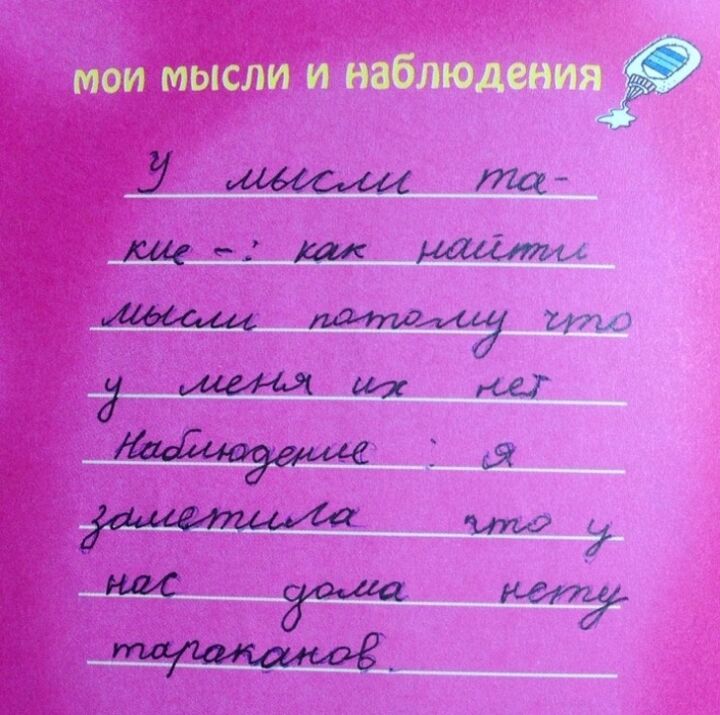 мои мысли и наблюдения
У мысли та-
кие -: как найти
мысли потому что
у меня их нет
Наблюдение : я
заметила что у
нас дома нету
тараканов.